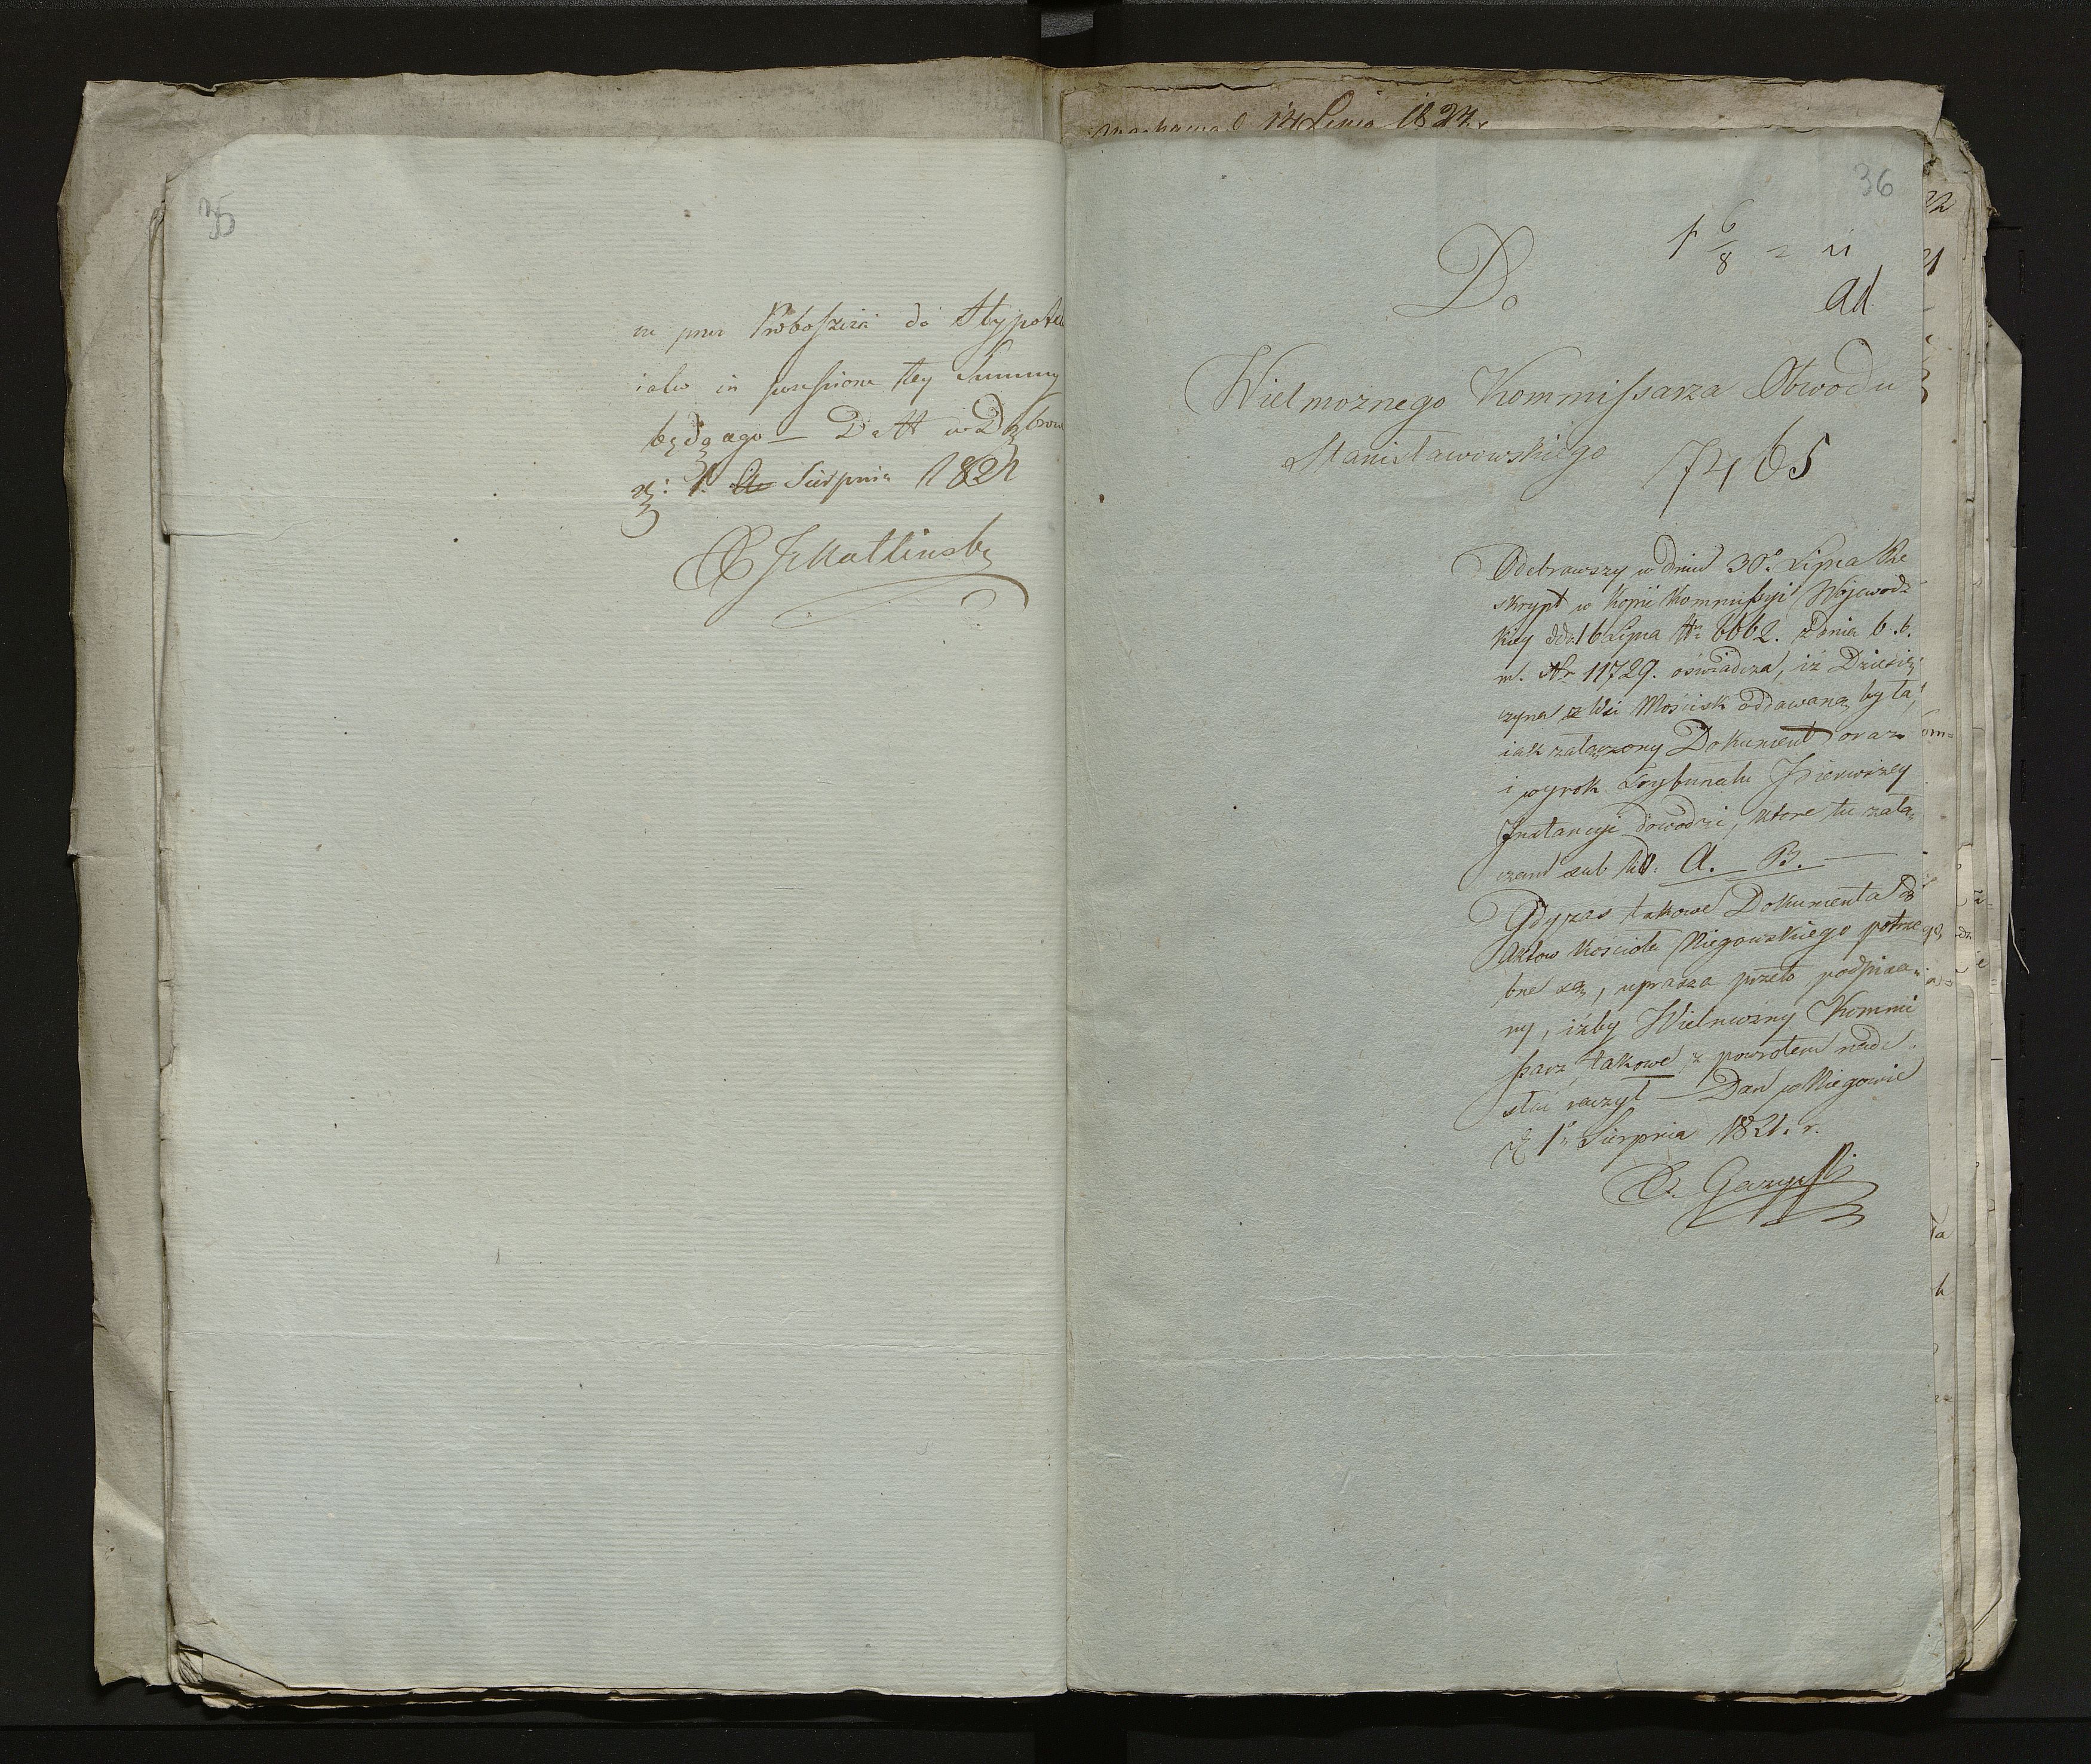 35
przez Proboszcza do Hypotek
iako in possessione tey Summy
będącego — Datt w Dąbrow
d: 1. Sierpnia 1821
X J Mallinski
14 Lipca 1824.
36
1 6/8
ad
Do
Wielmożnego Kommissarza Obwodu
Stanisławowskiego 7465
Odebrawszy w dniu 30° Lipca Re
skrypt w kopii Kommissyi Wojewodz
kiey dd 16 Lipca Nr 6662. z dnia 6. b.
m. Nr 11729. oświadcza, iż Dziesię
czyna z Wsi Mościsk oddawaną była,
iak załączony Dokument oraz
i wyrok Trybunału Pierwszey
Instancyi dowodzi, ktore tu załą
czam sub lit. A. B. —
Gdy zaś takowe Dokumenta do
Aktow Kościoła Niegowskiego potrze
bne są, uprasza przeto podpisa
ny, iżby Wielmożny Kommi
ssarz takowe z powrotem nade
słać raczył — Dan w Niegowie
d 1° Sierpnia 1821. r.